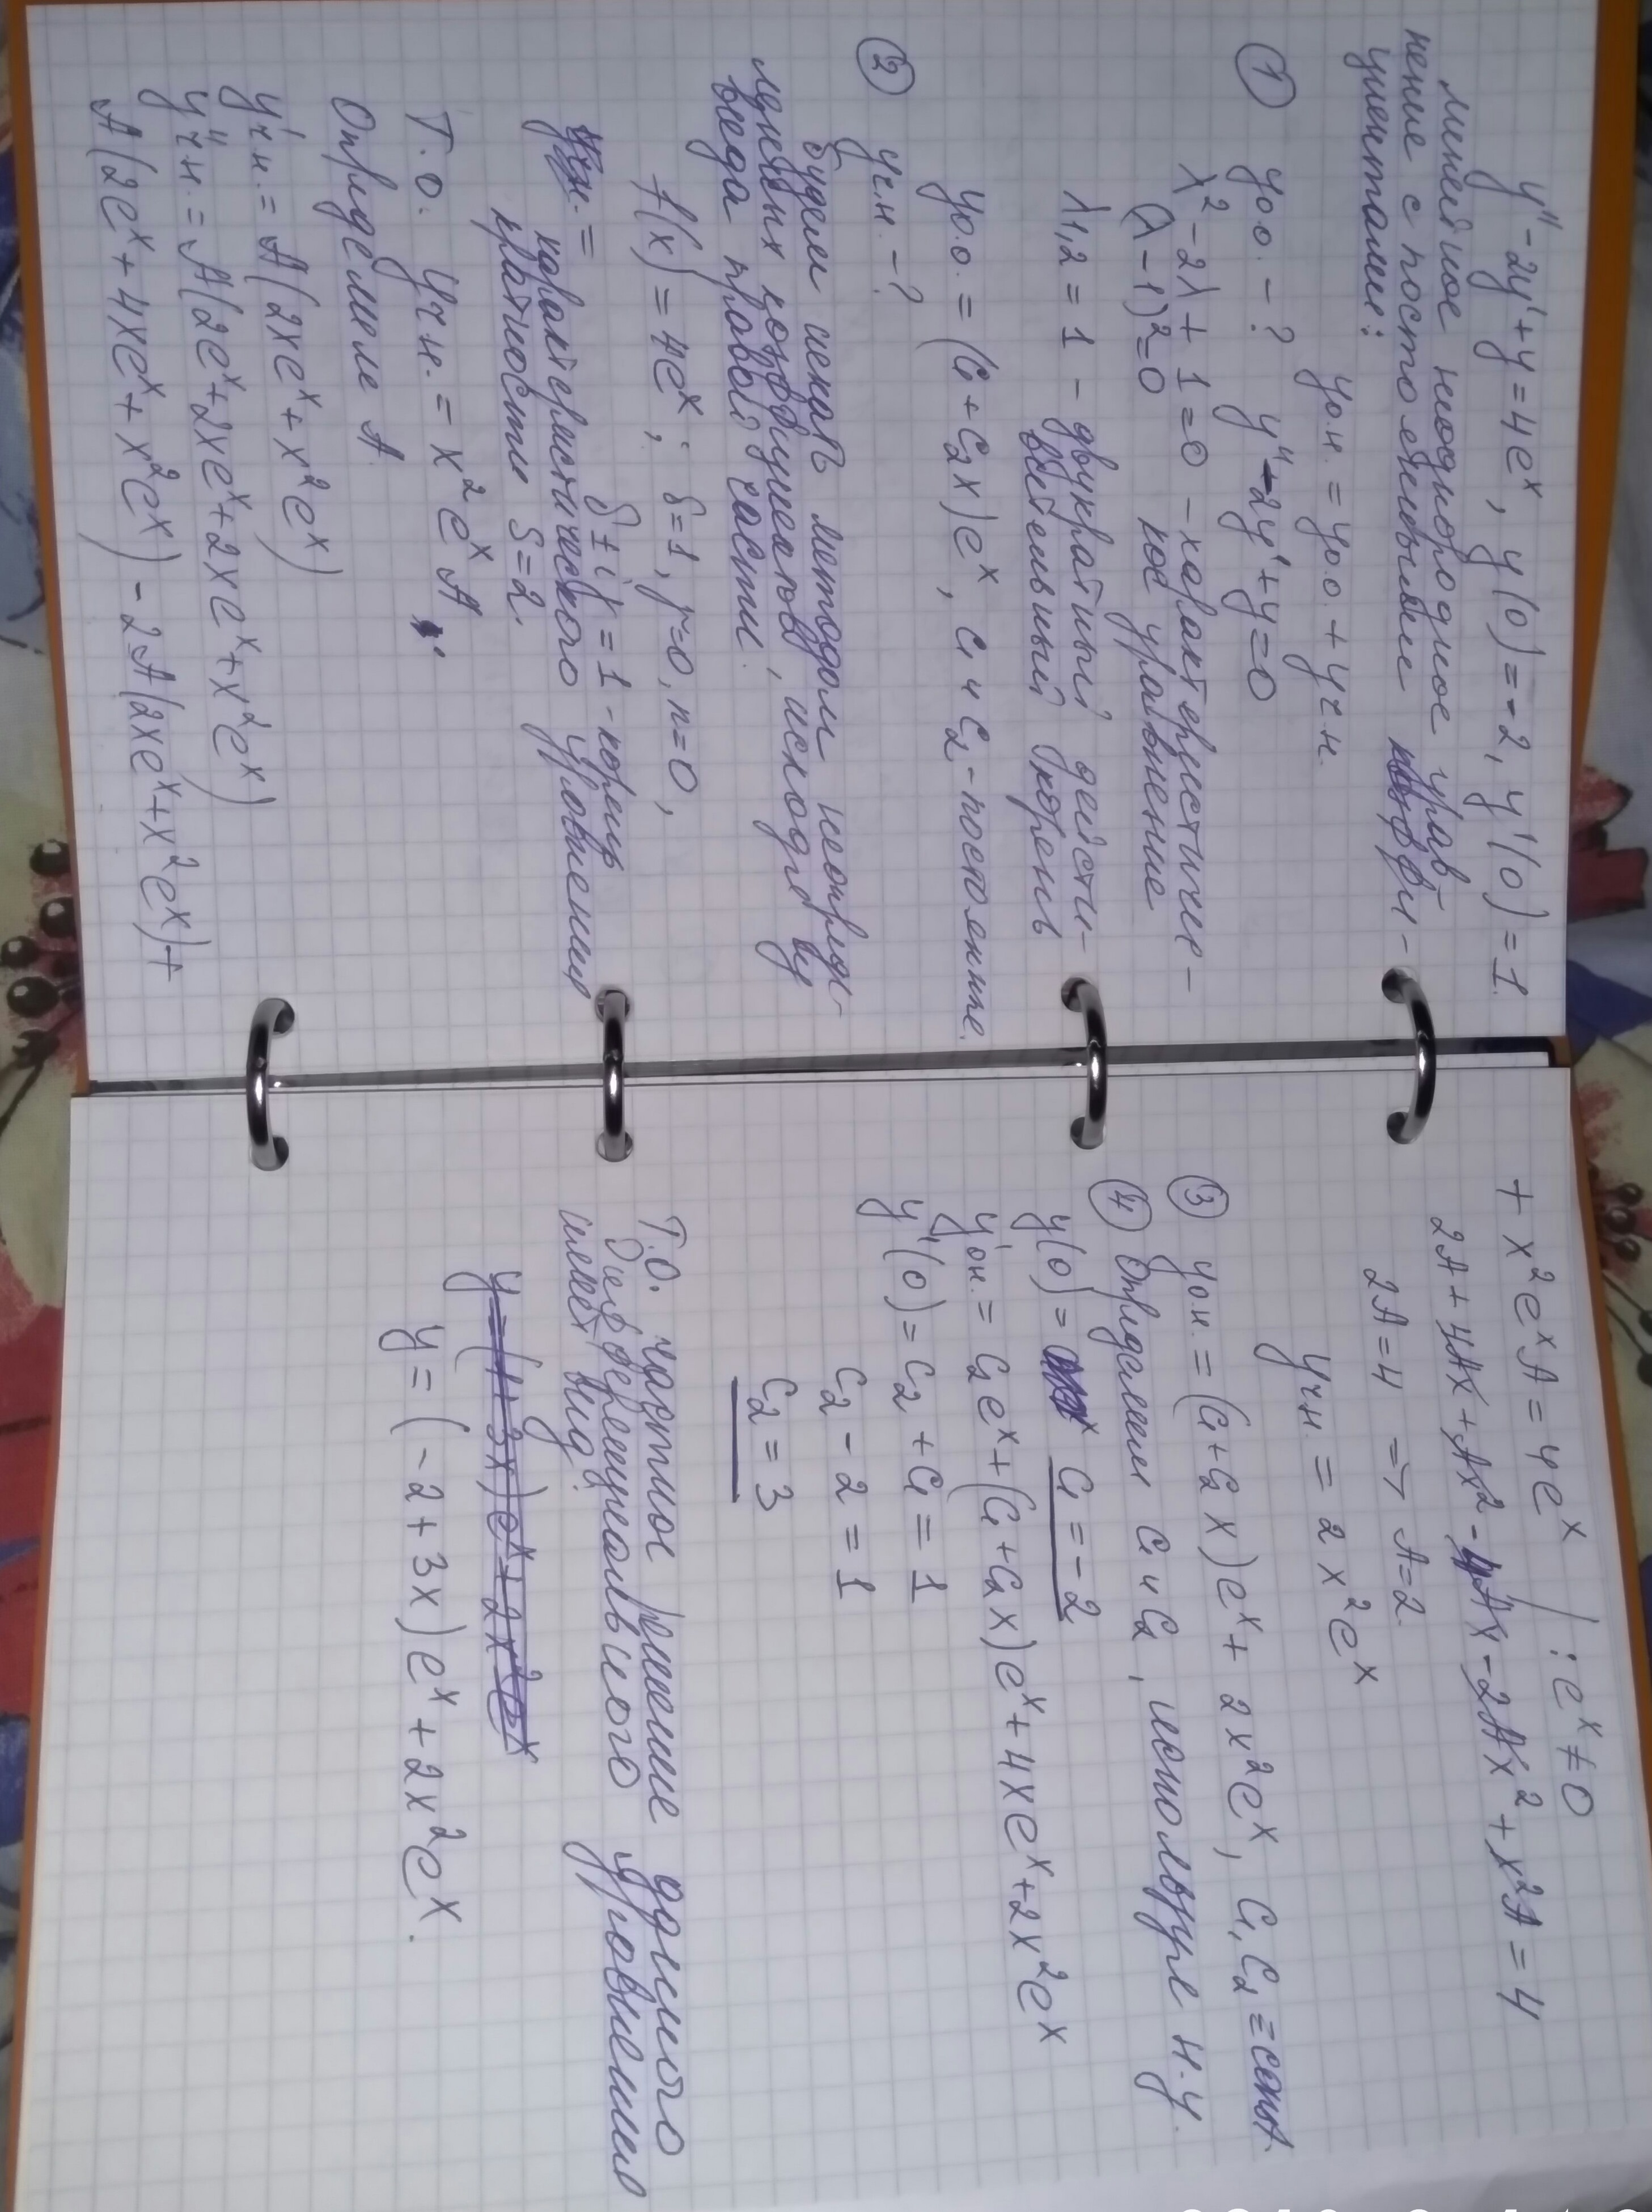 y'' - 2y' + y = 4e^x, y(0) = -2, y'(0) = 1.
Линейное неоднородное урав-
нение с постоянными коэффи-
циентами:
yо.н. = yо.о. + yч.н.
① yо.о. - ? y'' - 2y' + y = 0
λ² - 2λ + 1 = 0 - характеристичес-
(λ - 1)² = 0 кое уравнение
λ1,2 = 1 - двукратный действи-
вительный корень
yо.о. = (C1 + C2x)e^x, C1 и C2 - постоянные.
② yч.н. - ?
Будем искать методом неопреде-
ленных коэффициентов, исходя из
вида правой части.
f(x) = 4e^x; δ = 1, γ = 0, n = 0,
δ ± iγ = 1 - корень
характеристического уравнения
кратности S = 2.
Т.о. yч.н. = x²e^x A
Определим A.
y'ч.н. = A(2xe^x + x²e^x)
y''ч.н. = A(2e^x + 2xe^x + 2xe^x + x²e^x)
A(2e^x + 4xe^x + x²e^x) - 2A(2xe^x + x²e^x) +
+ x²e^x A = 4e^x | : e^x ≠ 0
2A + 4Ax + Ax² - 4Ax - 2Ax² + x²A = 4
2A = 4 => A = 2.
yчн = 2x²e^x
③ yо.н. = (C1 + C2x)e^x + 2x²e^x, C1, C2 = const
④ Определим C1 и C2, используя н.у.
y(0) = C1 = -2
y'он. = C2e^x + (C1 + C2x)e^x + 4xe^x + 2x²e^x
y'(0) = C2 + C1 = 1
C2 - 2 = 1
C2 = 3
Т.о. частное решение данного
дифференциального уравнения
имеет вид:
y = (1 + 3x)e^x + 2x²e^x
y = (-2 + 3x)e^x + 2x²e^x.